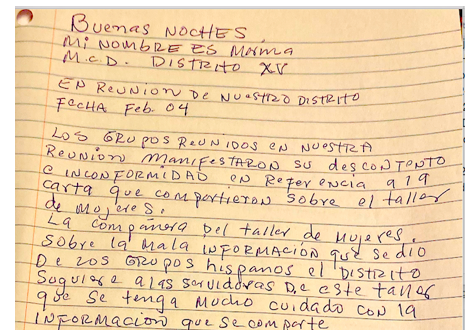 Buenas NOCHES
Mi NOMBRE ES Morma
M.C.D. DISTRITO XV
EN REUNION DE NUESTRO DISTRITO
FECHA Feb. 04
LOS GRUPOS REUNIDOS EN NUESTRA
REUNION MANIFESTARON SU desCONTENTO
e INCONFORMIDAD EN Referencia a la
carta que compartieron sobre el taller
de MujereS.
La compañera Del taller de Mujeres.
Sobre la Mala INFORMACION que se dio
De LOS GRUPOS hispanos el DISTRITO
Suguiere a las servidoras De este taller
que Se tenga Mucho cuidado con la
INFORMACION que se comparte